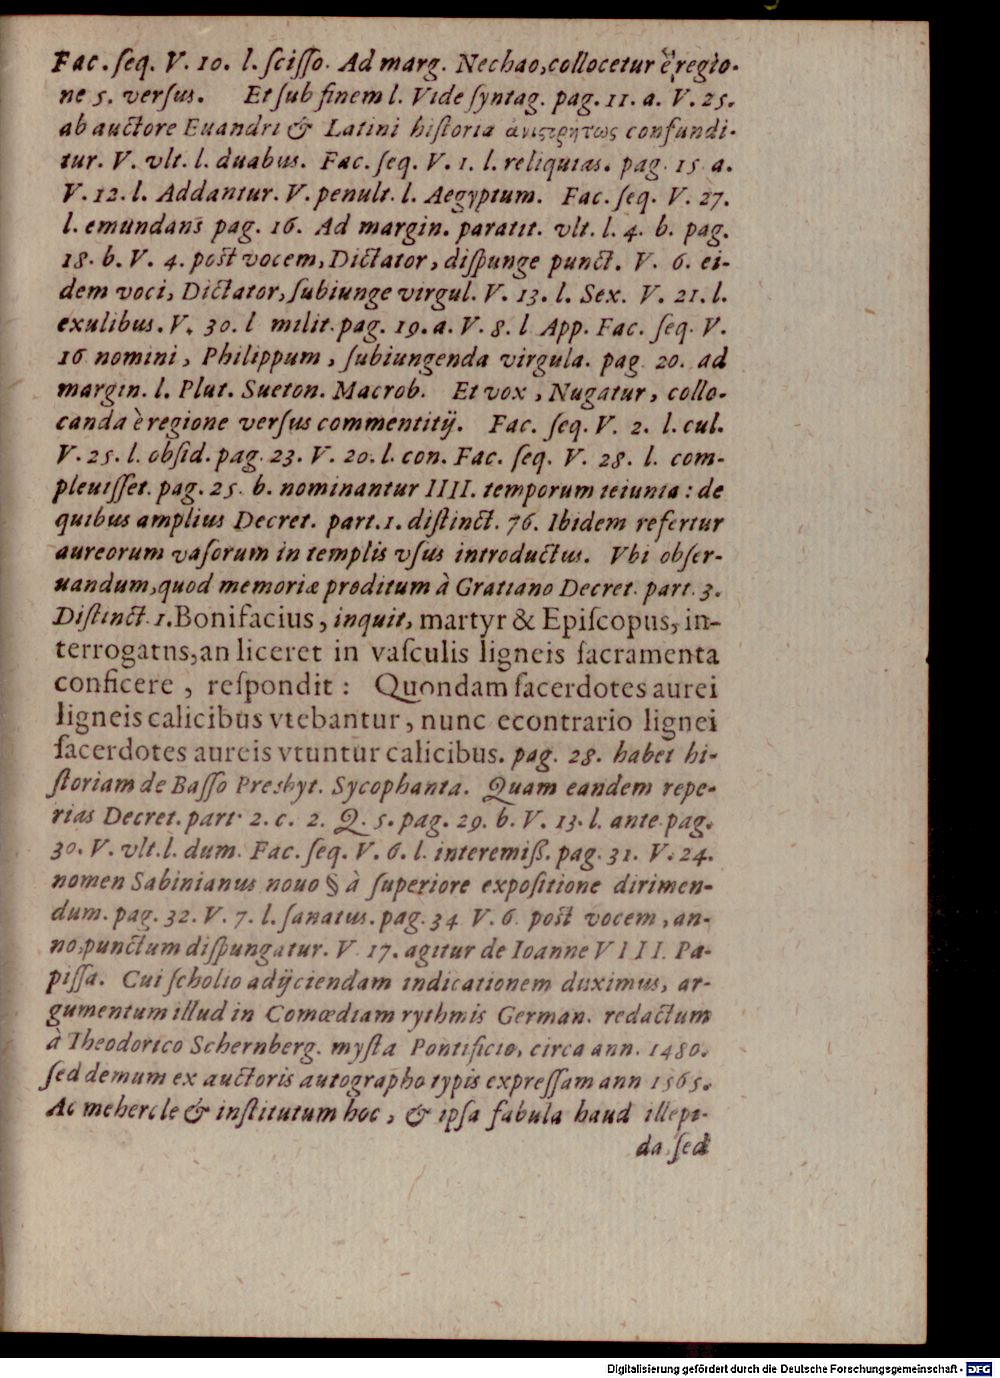 Fac. ſeq. V. 10. l. ſciſſo. Ad marg. Nechao, collocetur è regio-
ne 5. verſus. Et ſub finem l. Vide ſyntag. pag. 11. a. V. 25.
ab auctore Euandri & Latini hiſtoria ἀνιςρήτως confundi-
tur. V. vlt. l. duabus. Fac. ſeq. V. 1. l. reliquias. pag. 15 a.
V. 12. l. Addantur. V. penult. l. Aegyptum. Fac. ſeq. V. 27.
l. emundans pag. 16. Ad margin. paratit. vlt. l. 4. b. pag.
18. b. V. 4. poſt vocem, Dictator, diſpunge punct. V. 6. ei-
dem voci, Dictator, ſubiunge virgul. V. 13. l. Sex. V. 21. l.
exulibus. V. 30. l milit. pag. 19. a. V. 8. l App. Fac. ſeq. V.
16 nomini, Philippum, ſubiungenda virgula. pag. 20. ad
margin. l. Plut. Sueton. Macrob. Et vox, Nugatur, collo-
canda è regione verſus commentitij. Fac. ſeq. V. 2. l. cul.
V. 25. l. obſid. pag. 23. V. 20. l. con. Fac. ſeq. V. 28. l. com-
pleuiſſet. pag. 25. b. nominantur IIII. temporum ieiunia: de
quibus amplius Decret. part. 1. diſtinct. 76. Ibidem refertur
aureorum vaſorum in templis vſus introductus. Vbi obſer-
uandum, quod memoriæ proditum à Gratiano Decret. part. 3.
Diſtinct. 1. Bonifacius, inquit, martyr & Epiſcopus, in-
terrogatns, an liceret in vaſculis ligneis ſacramenta
conficere, reſpondit: Quondam ſacerdotes aurei
ligneis calicibus vtebantur, nunc econtrario lignei
ſacerdotes aureis vtuntur calicibus. pag. 28. habet hi-
ſtoriam de Baſſo Presbyt. Sycophanta. Quam eandem repe-
rias Decret. part. 2. c. 2. Q. 5. pag. 29. b. V. 13. l. ante pag.
30. V. vlt. l. dum. Fac. ſeq. V. 6. l. interemiß. pag. 31. V. 24.
nomen Sabinianus nouo § à ſuperiore expoſitione dirimen-
dum. pag. 32. V. 7. l. ſanatus. pag. 34 V. 6. poſt vocem, an-
no, punctum diſpungatur. V 17. agitur de Ioanne VIII. Pa-
piſſa. Cui ſcholio adijciendam indicationem duximus, ar-
gumentum illud in Comœdiam rythmis German. redactum
à Theodorico Schernberg. myſta Pontificio, circa ann. 1480.
ſed demum ex auctoris autographo typis expreſſam ann 1565.
Ac mehercle & inſtitutum hoc, & ipſa fabula haud illepi-
da ſed
Digitalisierung gefördert durch die Deutsche Forschungsgemeinschaft - DFG